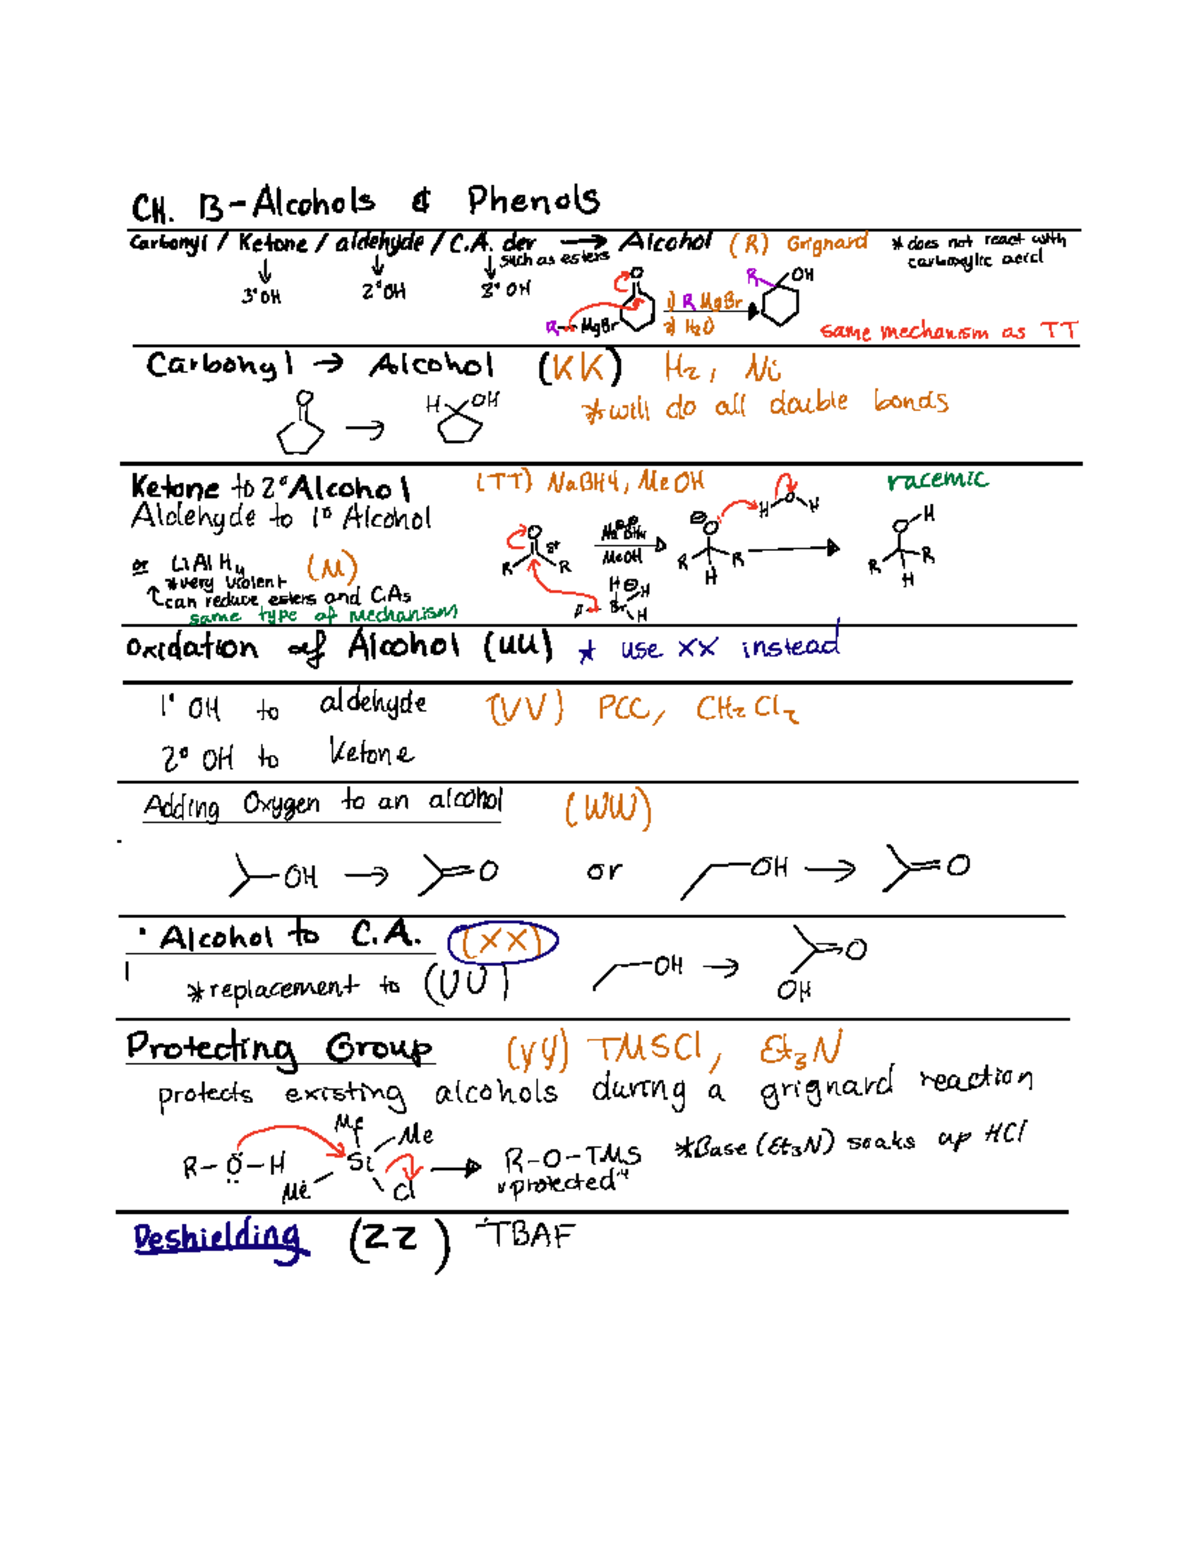 CH. 13 - Alcohols & Phenols
Carbonyl / Ketone / aldehyde / C.A. der → Alcohol (R) Grignard * does not react with
such as esters carboxylic acid
↓ ↓ ↓
3°OH 2°OH 3°OH
O R OH
R-MgBr 1) R MgBr
2) H2O
same mechanism as TT
Carbonyl → Alcohol (KK) H2, Ni
*will do all double bonds
O → H OH
Ketone to 2° Alcohol (TT) NaBH4, MeOH racemic
Aldehyde to 1° Alcohol
or LiAlH4 (M)
*very violent
↑can reduce esters and CAs
same type of mechanism
O δ+ R R
MeOH
⊖ O R R H
H O H
O H R R H
H ⊖ H Br H
Oxidation of Alcohol (UU) * use XX instead
1° OH to aldehyde (VV) PCC, CH2Cl2
2° OH to Ketone
Adding Oxygen to an alcohol (WW)
OH → O or OH → O
Alcohol to C.A. (XX)
*replacement to (UU)
OH → O OH
Protecting Group (YY) TMSCl, Et3N
protects existing alcohols during a grignard reaction
R-O-H Me Me Si Me Cl → R-O-TMS *Base (Et3N) soaks up HCl
"protected"
Deshielding (ZZ) TBAF